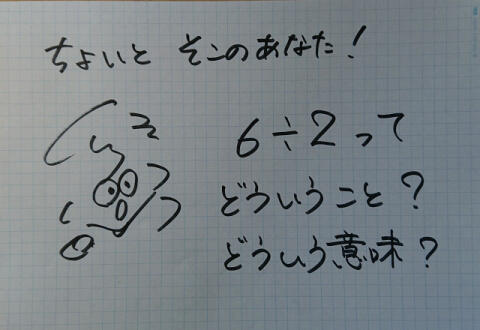 ちょいと そこのあなた！
6÷2って
どういうこと？
どういう意味？